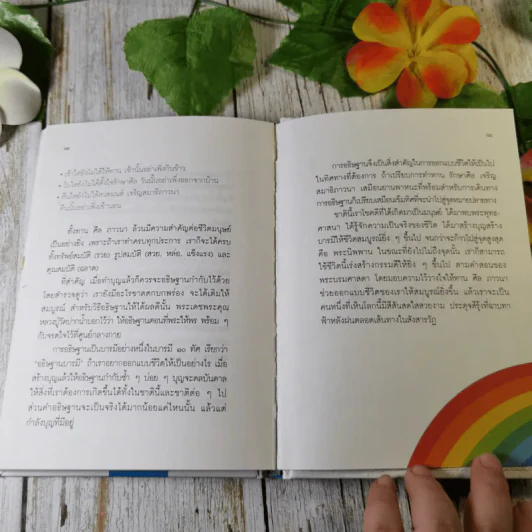 • เช้าใดยังไม่ได้ให้ทาน เช้านั้นอย่าเพิ่งกินข้าว
• วันใดยังไม่ได้ตั้งใจรักษาศีล วันนั้นอย่าเพิ่งออกจากบ้าน
• คืนใดยังไม่ได้สวดมนต์ เจริญสมาธิภาวนา
คืนนั้นอย่าเพิ่งเข้านอน
ทั้งทาน ศีล ภาวนา ล้วนมีความสำคัญต่อชีวิตมนุษย์
เป็นอย่างยิ่ง เพราะถ้าเราทำครบทุกประการ เราก็จะได้ครบ
ทั้งทรัพย์สมบัติ (รวย) รูปสมบัติ (สวย, หล่อ, แข็งแรง) และ
คุณสมบัติ (ฉลาด)
ที่สำคัญ เมื่อทำบุญแล้วก็ควรจะอธิษฐานกำกับไว้ด้วย
โดยสำรวจดูว่า เรายังมีอะไรขาดตกบกพร่อง จะได้เติมให้
สมบูรณ์ สำหรับวิธีอธิษฐานให้ได้ผลดีนั้น พระเดชพระคุณ
หลวงปู่วัดปากน้ำบอกไว้ว่า ให้อธิษฐานตอนที่พระให้พร พร้อม ๆ
กับจรดใจไว้ที่ศูนย์กลางกาย
การอธิษฐานเป็นบารมีอย่างหนึ่งในบารมี ๑๐ ทัศ เรียกว่า
“อธิษฐานบารมี” ถ้าเราอยากออกแบบชีวิตให้เป็นอย่างไร เมื่อ
สร้างบุญแล้วให้อธิษฐานกำกับซ้ำ ๆ บ่อย ๆ บุญจะดลบันดาล
ให้สิ่งที่เราต้องการเกิดขึ้นได้ทั้งในชาตินี้และชาติต่อ ๆ ไป
ส่วนคำอธิษฐานจะเป็นจริงได้มากน้อยแค่ไหนนั้น แล้วแต่
กำลังบุญที่มีอยู่
การอธิษฐานจึงเป็นสิ่งสำคัญในการออกแบบชีวิตให้เป็นไป
ในทิศทางที่ต้องการ ถ้าเปรียบการทำทาน รักษาศีล เจริญ
สมาธิภาวนา เสมือนยานพาหนะที่พร้อมสำหรับการเดินทาง
การอธิษฐานก็เปรียบเสมือนเข็มทิศที่จะนำไปสู่จุดหมายปลายทาง
ชาตินี้เราโชคดีที่ได้เกิดมาเป็นมนุษย์ ได้มาพบพระพุทธ-
ศาสนา ได้รู้จักความเป็นจริงของชีวิต ได้มาสร้างบุญสร้าง
บารมีให้ชีวิตสมบูรณ์ยิ่ง ๆ ขึ้นไป จนกว่าจะก้าวไปสู่จุดสูงสุด
คือ พระนิพพาน ในขณะที่ยังไปไม่ถึงจุดนั้น เราก็สามารถ
ใช้ชีวิตนี้เร่งสร้างกรรมดีให้ยิ่ง ๆ ขึ้นไป ตามคำสอนของ
พระบรมศาสดา โดยมอบความไว้วางใจให้ทาน ศีล ภาวนา
ช่วยออกแบบชีวิตของเราให้สมบูรณ์ยิ่งขึ้น แล้วเราจะเป็น
คนหนึ่งที่เห็นโลกนี้มีสีสันสดใสสวยงาม ประดุจดังรุ้งที่ฉาบทา
ฟ้าหลังฝนตลอดเส้นทางในสังสารวัฏ